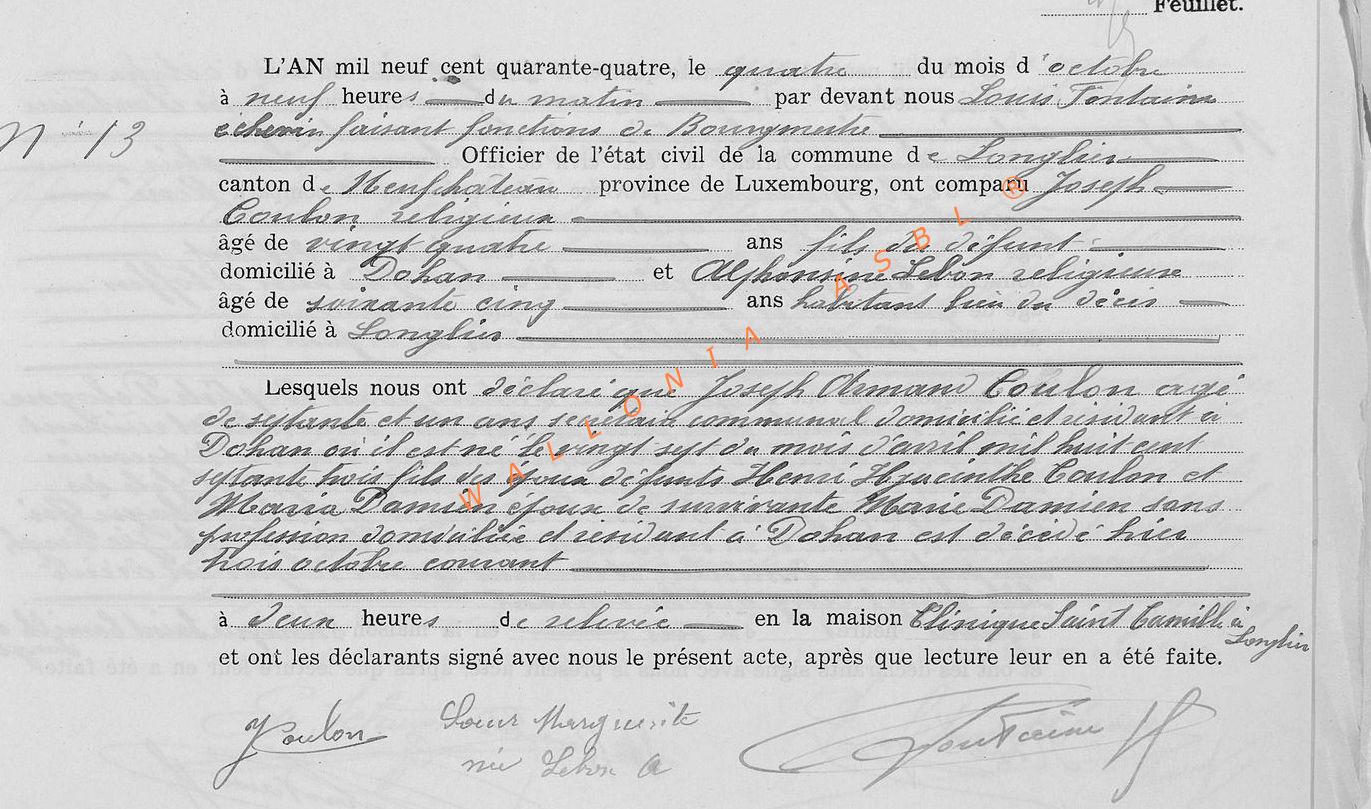 Feuillet.
L'AN mil neuf cent quarante-quatre, le quatre du mois d'octobre
à neuf heures du matin par devant nous Louis Fontaine
N° 13
échevin faisant fonctions de Bourgmestre
Officier de l'état civil de la commune de Longlier
canton de Neufchâteau province de Luxembourg, ont comparu Joseph
Coulon religieux
âgé de vingt quatre ans fils du défunt
domicilié à Dohan et Alphonsine Lebon religieuse
âgé de soixante cinq ans habitant lieu du décès
domicilié à Longlier
Lesquels nous ont déclaré que Joseph Armand Coulon agé
de septante et un ans secrétaire communal domicilié et résidant à
Dohan où il est né le vingt sept du mois d'avril mil huit cent
septante trois fils des époux défunts Henri Hyacinthe Coulon et
Maria Damien époux de survivante Marie Damien sans
profession domiciliée et résidant à Dohan est décédé hier
trois octobre courant
à deux heures de relevée en la maison Clinique Saint Camille à
Longlier
et ont les déclarants signé avec nous le présent acte, après que lecture leur en a été faite.
J Coulon Soeur Marguerite Fontaine
née Lebon A
WALLONIA ASBL ®